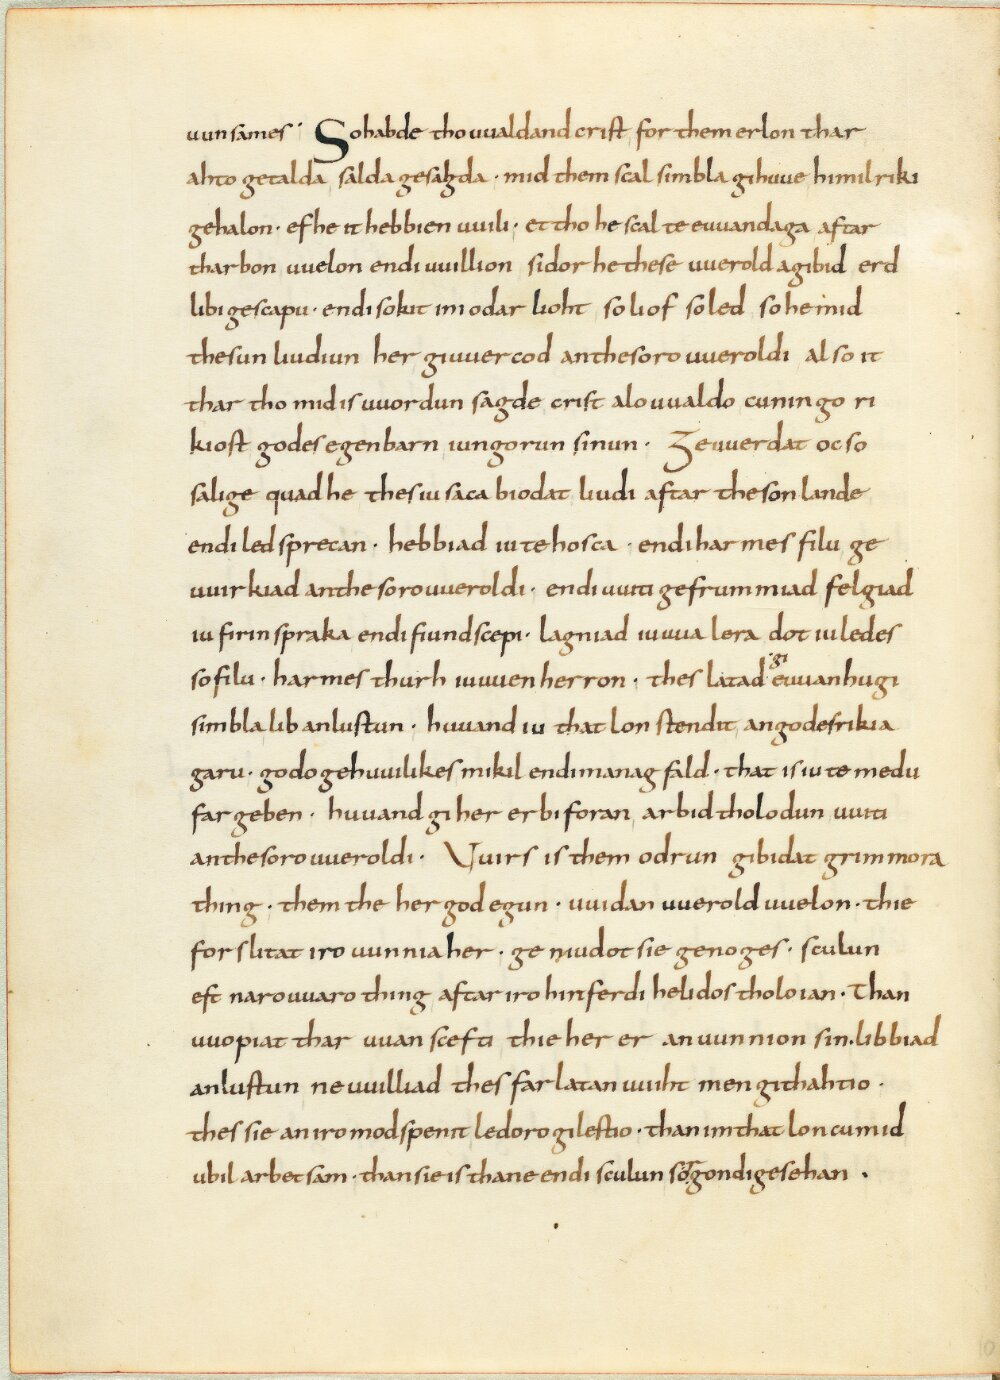 uunsames · Sohabde tho uualdand crist for them erlon thar
ahto getalda salda gesagda · mid them scal simbla gihuue himilriki
gehalon · ef he it hebbien uuili · et tho he scal te euuandaga aftar
tharbon uuelon endi uuillion sidor he these uuerold agibid erd
libi gescapu · endi sokit im odar lioht so liof so led so he mid
thesun liudiun her giuuercod an thesoro uueroldi al so it
thar tho mid is uuordun sagde crist alouualdo cuningo ri
kiost godes egen barn iungorun sinun · Ge uuerdat oc so
salige quad he thes iu saca biodat liudi aftar theson lande
endi led sprecan · hebbiad iu te hosca · endi harmes filu ge
uuirkiad an thesoro uueroldi · endi uuiti gefrummiad felgiad
iu firinspraka endi fiundscepi · lagniad iuuua lera dot iu ledes
so filu · harmes thurh iuuuen herron · thes latad gi euuan hugi
simbla lib an lustun · huuand iu that lon stendit an godes rikia
garu · godo gehuuilikes mikil endi manag fald · that is iu te medu
fargeben · huuand gi her er biforan arbid tholodun uuiti
an thesoro uueroldi · Uuirs is them odrun gibidat grimmora
thing · them the her god egun · uuidan uuerold uuelon · thie
forslitat iro uunnia her · ge niudot sie genoges · sculun
eft narouuaro thing aftar iro hinferdi helidos tholoian · Than
uuopiat thar uuan scefti thie her er an uunnion sin · libbiad
an lustun ne uuilliad thes farlatan uuiht mengithahtio ·
thes sie an iro mod spenit ledoro gilestio · than im that lon cumid
ubil arbetsam · than sie is thane endi sculun sorgondi gesehan ·